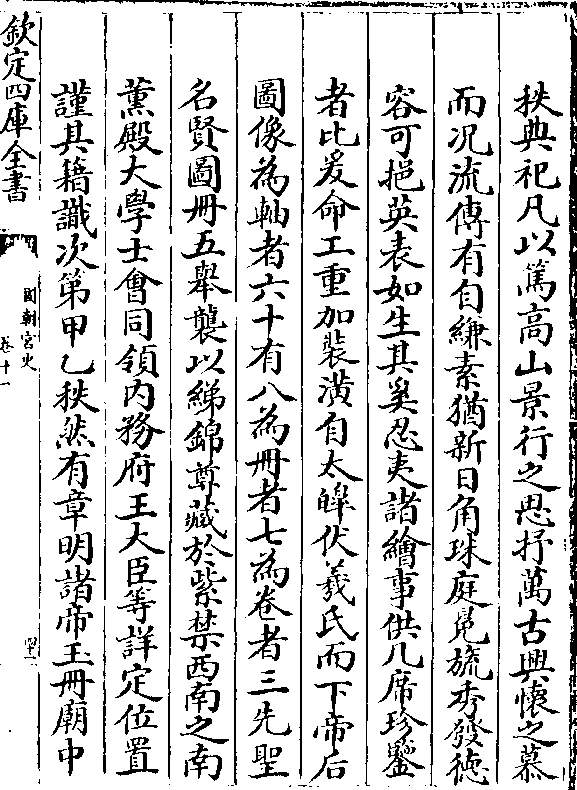 秩典祀凡以篤高山景行之思抒萬古興懷之慕
而况流傳有自縑素猶新日角珠庭冕旒秀發徳
容可挹英表如生其奚忍夷諸繪事供几席珍鑒
者比爰命工重加裝潢自太皥伏羲氏而下帝后
圖像為軸者六十有八為冊者七為卷者三先聖
名賢圖冊五舉襲以綈錦尊藏於紫禁西南之南
薫殿大學士會同領内務府王大臣等詳定位置
謹其籍識次第甲乙秩然有章明諸帝玉冊廟中
欽定四庫全書
國朝宫史
卷十一